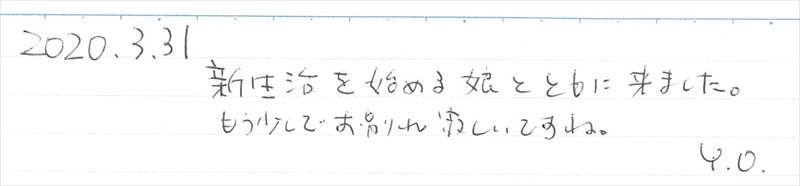 2020.3.31
新生活を始める娘とともに来ました。
もう少しでお別れ寂しいですね。
Y.O.